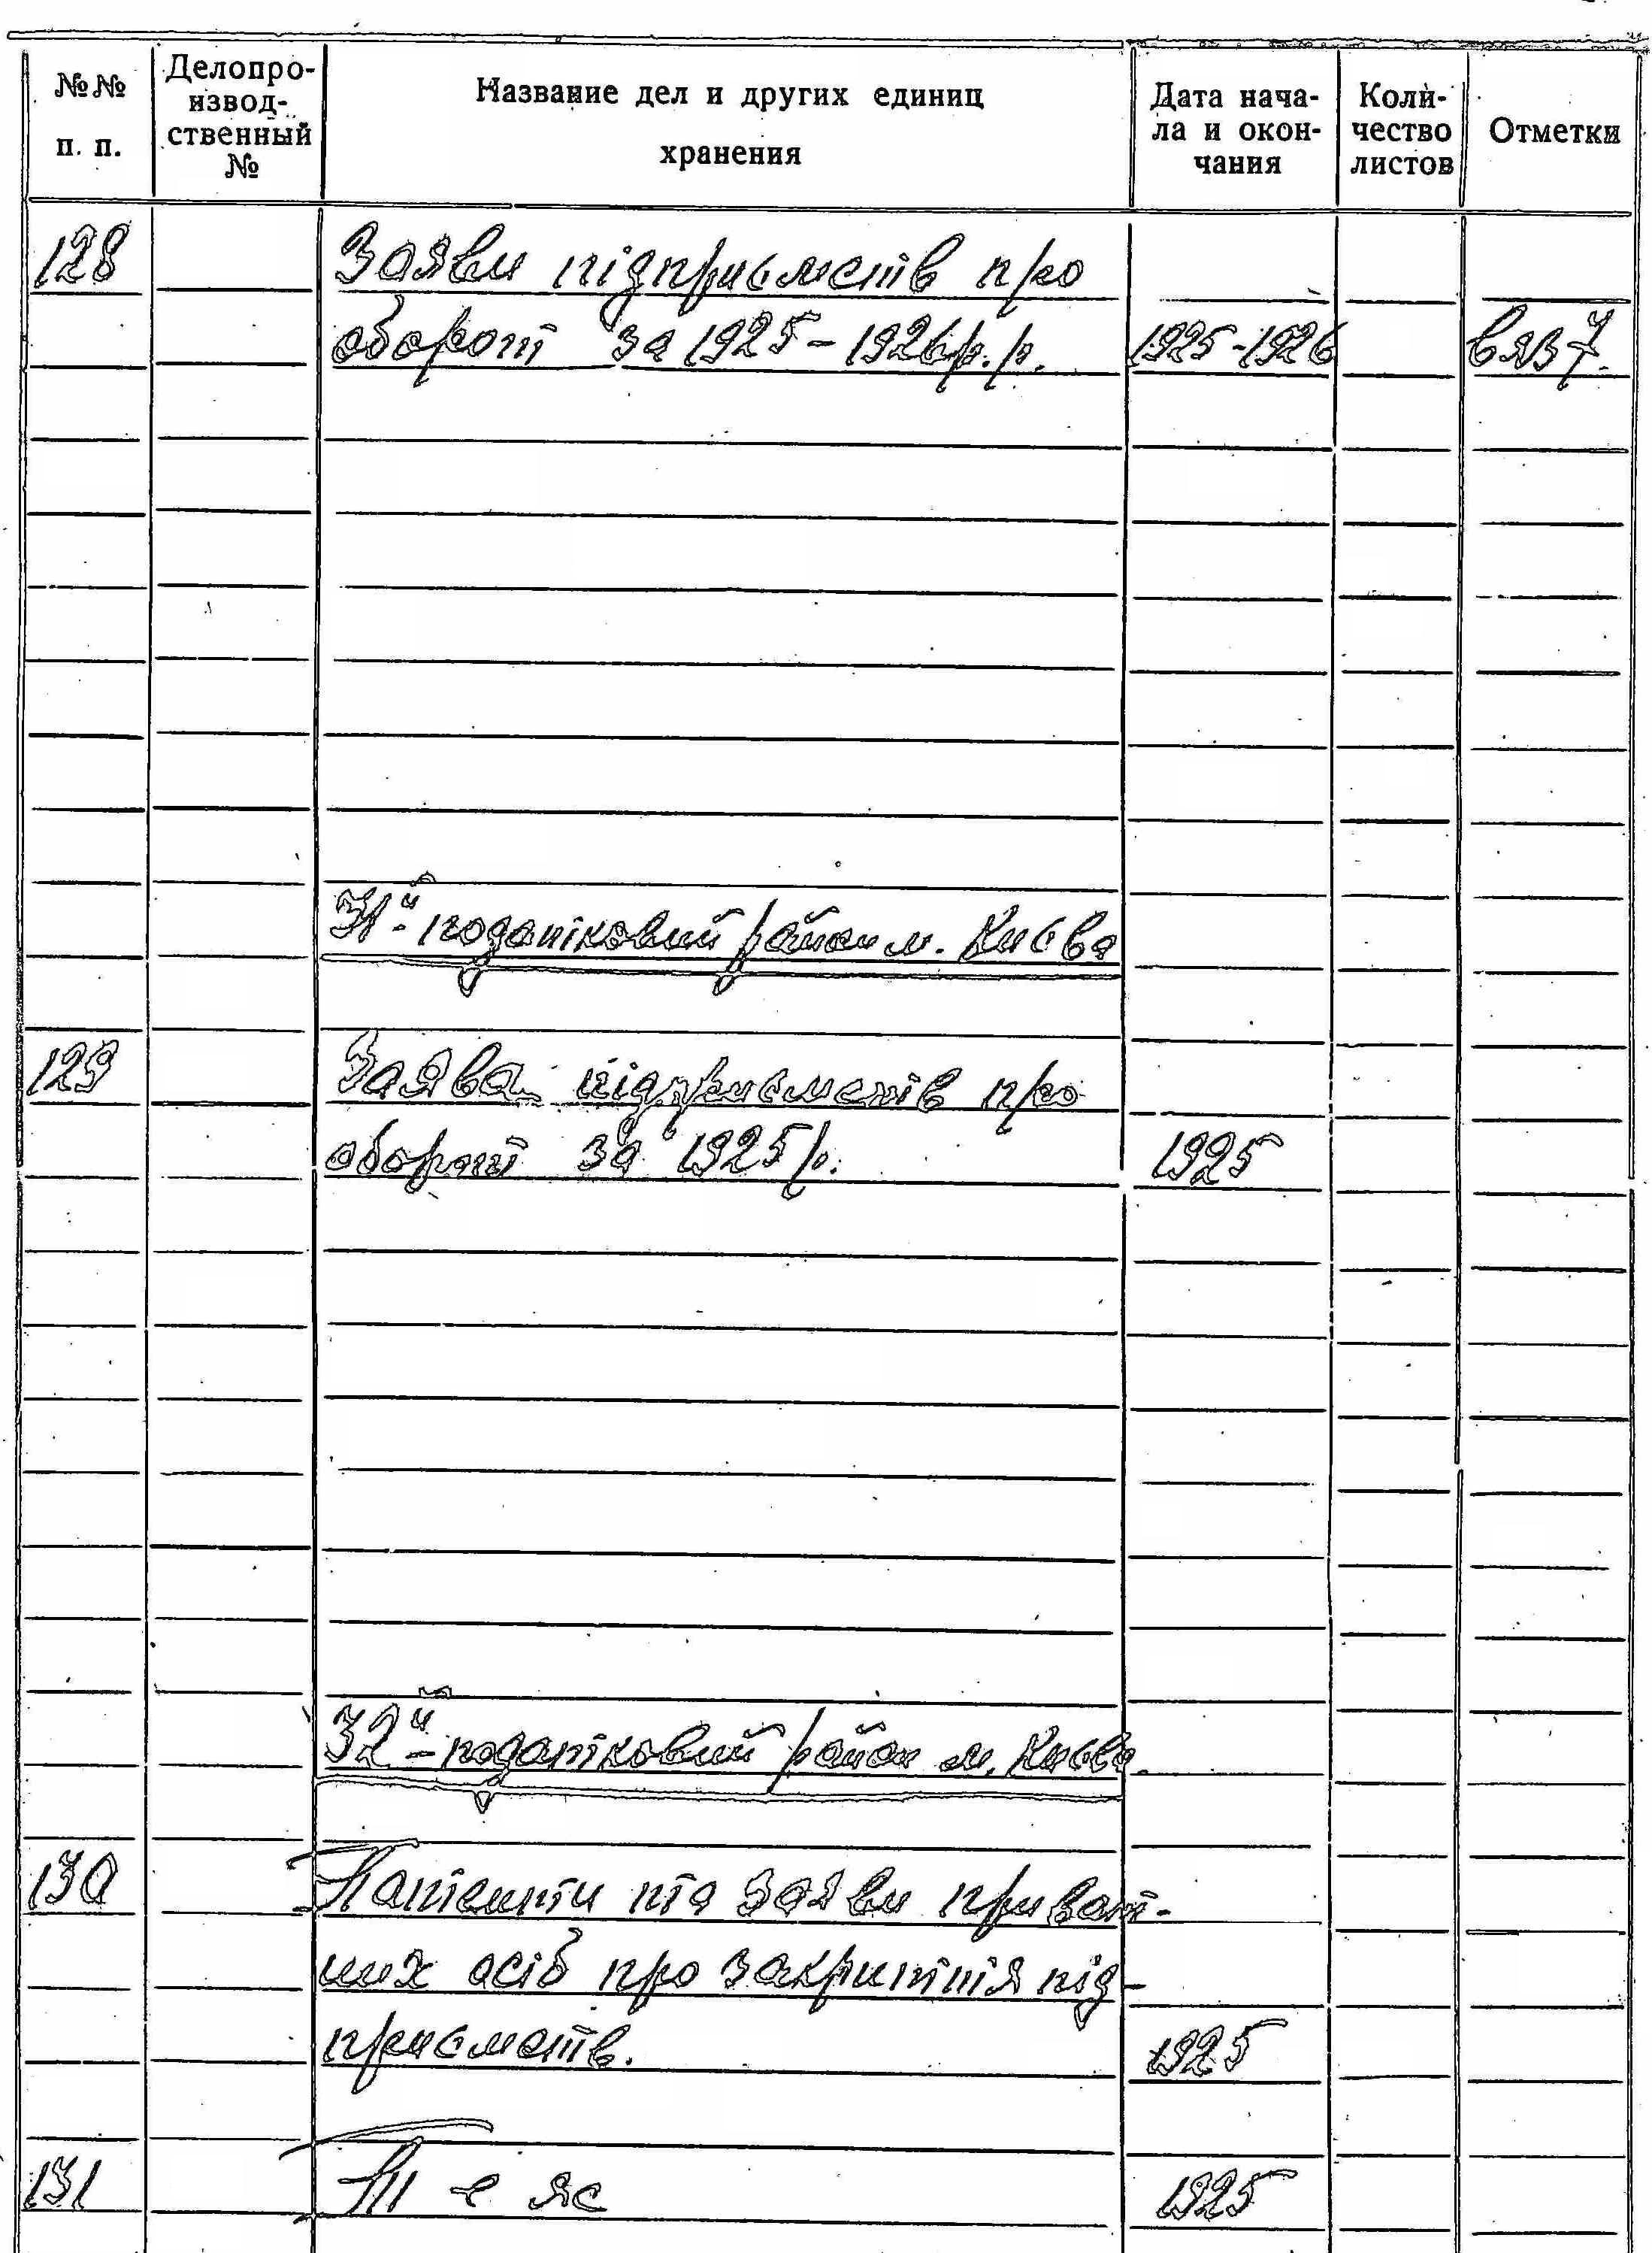 №№ п. п.
Делопро-
извод-
ственный
№
Название дел и других единиц
хранения
Дата нача-
ла и окон-
чания
Коли-
чество
листов
Отметки
128 Заяви підприємств про
оборот за 1925-1926р.р. 1925-1926 вяз 7.
31й податковий район м. Києва
129 Заява підприємств про
оборот за 1925р. 1925
32й - податковий район м. Києва.
130 Патенти та заяви приват-
них осіб про закриття під-
приємств. 1925
131 Т-е ж 1925